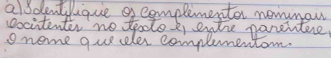 a) Identifique o complementos nominais
existentes no texto e, entre parêntere,
o nome que eles complementam.